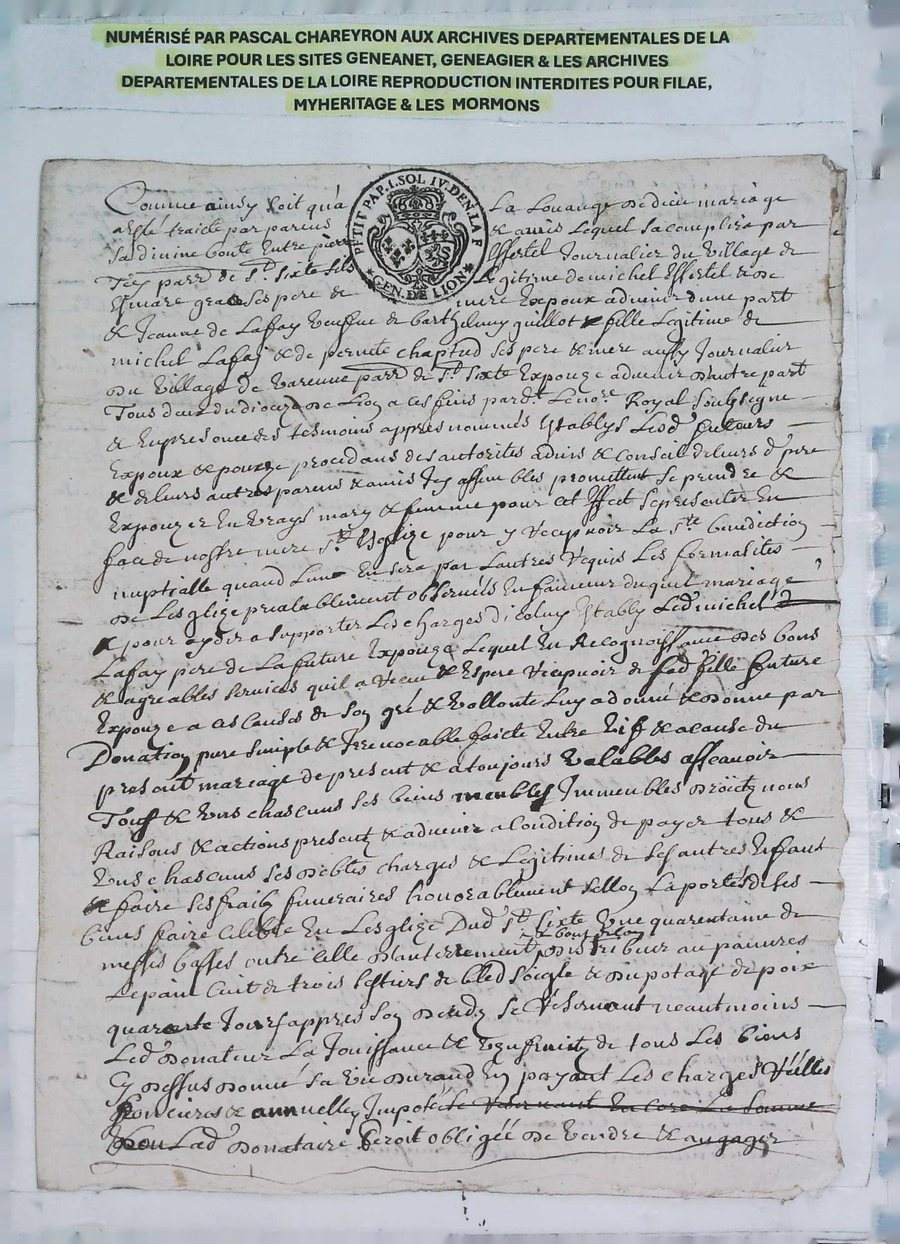 NUMÉRISÉ PAR PASCAL CHAREYRON AUX ARCHIVES DEPARTEMENTALES DE LA
LOIRE POUR LES SITES GENEANET, GENEAGIER & LES ARCHIVES
DEPARTEMENTALES DE LA LOIRE REPRODUCTION INTERDITES POUR FILAE,
MYHERITAGE & LES MORMONS
PETIT PAP. 1. SOL IV. DEN. LA F
GEN. DE LION
Comme ainsy soit qu'a La Louange de dieu mariage
aesté traicté par parens & amis Lequel sacomplira par
sa divine bonté Entre pierre Effertel Journalier du Village de
parr de St Sixte fils Legitime de michel Effertel & de
ses pere & mere Expoux advenir d'une part
& Jeanne de Laffay Veuffve de barthelemy guillot & fille Legitime de
michel Laffay & de pernette chaptud ses pere & mere aussy Journalier
du Village de Varenne parr de St Sixte Expouze advenir d'autre part
Tous deux du dioceze de Lion a ces fins pardt Le nore Royal soubsigne
& En presence des tesmoins appres nommés Establys Lesd futeurs
Expoux & Expouze procedans des autorités advis & conseil de leurs d pere
& de leurs autres parens & amis Icy assembles promettent se prendre &
Expouzer En Vrays mary & femme pour cet Effect se presenter En
face de nostre mere Ste Esglize pour y Recepvoir La Ste benediction
nuptialle quand L'un En sera par L'autres Requis Les formalites
de Lesglize prealablement observés En faineur duquel mariage
& pour ayder a supporter Les charges d'iceluy Estably Led michel
Laffay pere de La future Expouze Lequel En Recognoissance des bons
& agreables services quil a Receu & Espere Recepvoir de sad fille future
Expouze a ces causes de son gré & Vollonte Luy a donné & donne par
Donation pure simple & Irrevocable faicte Entre Vif & a cause du
present mariage de present & a toujours Valables assçavoir
Tous & Uns chascuns ses biens meubles Immeubles droicts noms
Raisons & actions present & advenir a Condition de payer tous &
Uns chascuns ses debtes charges & Legitimes de ses autres Enfant
& faire ses frais funeraires honorablement sellon La portes de ses
biens faire celebre En Lesglize Dud St Sixte Une quarentaine de
messes basses outre celle d'anterrement distribuer au pauvres
Le pain Cuit de trois sestiers de bled soigle & du potage de poix
quarante Jours appres son deces se Reservant neautmoins
Led Donateur La Jouissance & Uzufruict de tous Les biens
Cy dessus donné sa vie durand En payant Les charges
foncieres & annuelles Imposées Reservant Encore La somme
Lad donataire seroit obligée de Vendre & angager